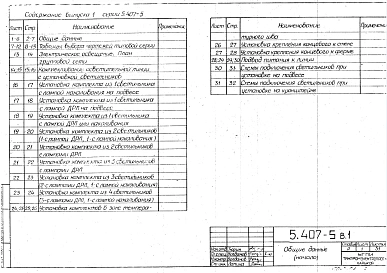 Содержание выпуска 1 серии 5.407-5
Лист Стр. Наименование Примечание
1-6 2-7 Общие данные
7-12 8-13 Таблицы выбора чертежей типовой серии
13 14 Электрическое освещение. План
групповой сети
Комплектование осветительной линии
с установкой светильников
16 17 Установка комплекта из 1 светильника
с лампой накаливания на подвесе
17 18 Установка комплекта из 1 светильника
с лампой ДРЛ на подвесе
18 19 Установка комплекта из 1 светильника
с лампой ДРЛ или накаливания
19 20 Установка комплекта из 2 светильников
(1-с лампой ДРЛ, 1-с лампой накаливания)
20 21 Установка комплекта из 2 светильников
с лампами ДРЛ
21 22 Установка комплекта из 3 светильников
с лампами ДРЛ
22 23 Установка комплекта из 3 светильников
(2-с лампами ДРЛ, 1-с лампой накаливания)
23 24 Установка комплекта из 4 светильников
(3-с лампами ДРЛ, 1-с лампой накаливания)
24,25 25,26 Установка комплектов в зоне темпера-
Лист Стр. Наименование Примечание
турного шва
26 27 Установка крепления концевого к стене
27 28 Установка крепления концевого к ферме
28,29 29,30 Подвод питания к линии
30 31 Схемы подключения светильников при
установке на подвесе
31 32 Схемы подключения светильников при
установке на кронштейне
5.407-5 в.1
Общие данные
(начало)